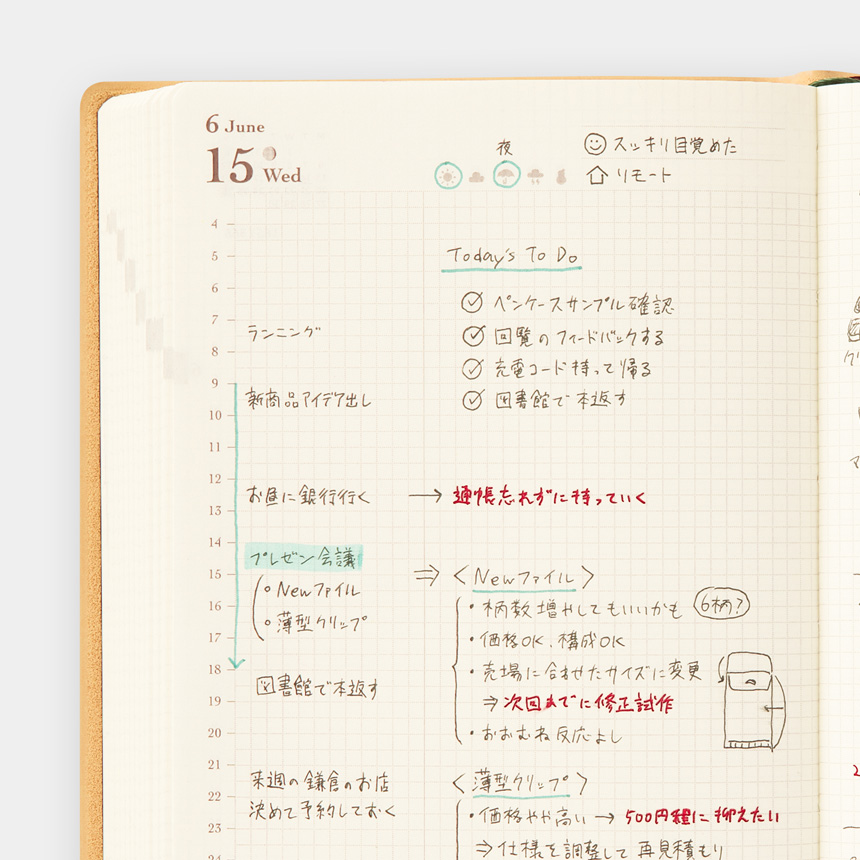 6 June
15 Wed
夜
スッキリ目覚めた
リモート
4
5
6
7
8
9
10
11
12
13
14
15
16
17
18
19
20
21
22
23
24
ランニング
新商品アイデア出し
お昼に銀行行く
プレゼン会議
• Newファイル
• 薄型クリップ
図書館で本返す
来週の鎌倉のお店
決めて予約しておく
Today's To Do
ペンケースサンプル確認
回覧のフィードバックする
充電コード持って帰る
図書館で本返す
→ 通帳忘れずに持っていく
⇒ 〈Newファイル〉
・柄数増やしてもいいかも 6柄?
・価格OK、構成OK
・売場に合わせたサイズに変更
⇒ 次回までに修正試作
・おおむね反応よし
〈薄型クリップ〉
・価格やや高い → 500円程に抑えたい
⇒ 仕様を調整して再見積もり